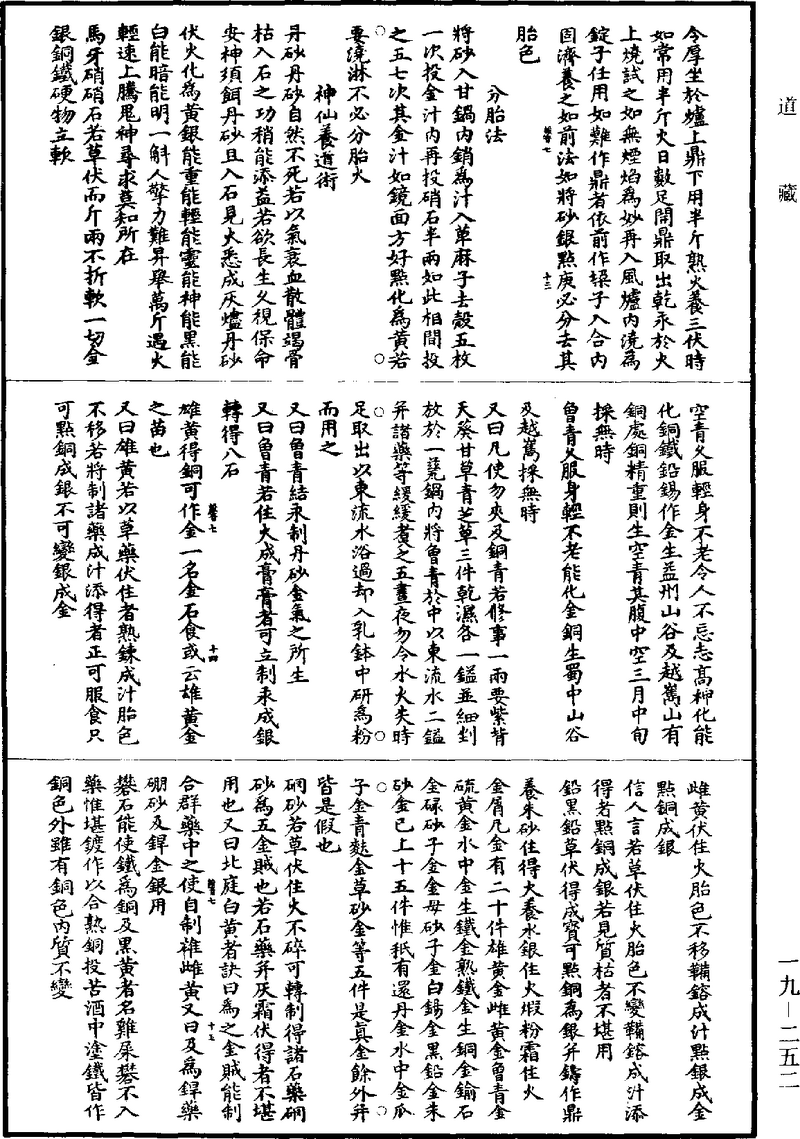 道藏
今厚坐於爐上鼎下用半斤熟火養三伏時
如常用半斤火日數足開鼎取出乾汞於火
上燒試之如無煙焰為妙再入風爐內澆為
錠子任用如難作鼎者依前作𡍼子入合內
固濟養之如前法如將砂銀點庚必分去其
卷七
十三
胎色
分胎法
將砂入甘鍋內銷為汁入萆麻子去殼五枚
一次投金汁內再投硝石半兩如此相間投
之五七次其金汁如鏡面方好點化為黃若
要澆淋不必分胎火
神仙養道術
丹砂丹砂自然不死若以氣衰血散體竭骨
枯入石之功稍能添益若欲長生久視保命
安神須餌丹砂且入石見火悉成灰爐丹砂
伏火化為黃銀能重能輕能靈能神能黑能
白能暗能明一斛人擎力難昇舉萬斤遇火
輕速上騰鬼神尋求莫知所在
馬牙硝硝石若草伏而斤兩不折軟一切金
銀銅鐵硬物立軟
空青久服輕身不老令人不忘志高神化能
化銅鐵鉛錫作金生益州山谷及越嶲山有
銅處銅精熏則生空青其腹中空三月中旬
採無時
曾青久服身輕不老能化金銅生蜀中山谷
及越嶲採無時
又曰凡使勿夾及銅青若修事一兩要紫背
天葵甘草青芝草三件乾濕各一鎰並細剉
放於一甆鍋內將曾青於中以東流水二鎰
并諸藥等緩緩煮之五晝夜勿令水火失時
足取出以東流水浴過却入乳鉢中研為粉
而用之
又曰曾青結汞制丹砂金氣之所生
又曰曾青若住火成膏膏者可立制汞成銀
轉得八石
卷七
十四
雄黃得銅可作金一名金石食或云雄黃金
之苗也
又曰雄黃若以草藥伏住者熟鍊成汁胎色
不移若將制諸藥成汁添得者正可服食只
可點銅成銀不可變銀成金
雌黃伏住火胎色不移鞴鎔成汁點銀成金
點銅成銀
信人言若草伏住火胎色不變鞴鎔成汁添
得者點銅成銀若見質枯者不堪用
鉛黑鉛草伏得成寶可點銅為銀并鑄作鼎
養朱砂住得火養水銀住火煅粉霜住火
金屑凡金有二十件雄黃金雌黃金曾青金
硫黃金水中金生鐵金熟鐵金生銅金鍮石
金碌砂子金金母砂子金白錫金黑鉛金朱
砂金已上十五件惟秖有還丹金水中金瓜
子金青麩金草砂金等五件是真金餘外并
皆是假也
硇砂若草伏住火不碎可轉制得諸石藥硇
砂為五金賊也若石藥并灰霜伏得者不堪
用也又曰北庭白黃者訣曰為之金賊能制
合群藥中之使自制雄雌黃又曰及為銲藥
卷七
十五
硼砂及銲金銀用
礬石能使鐵為銅及黑黃者名雞屎礬不入
藥惟堪鍍作以合熟銅投苦酒中塗鐵皆作
銅色外雖有銅色內質不變
一九—二五二